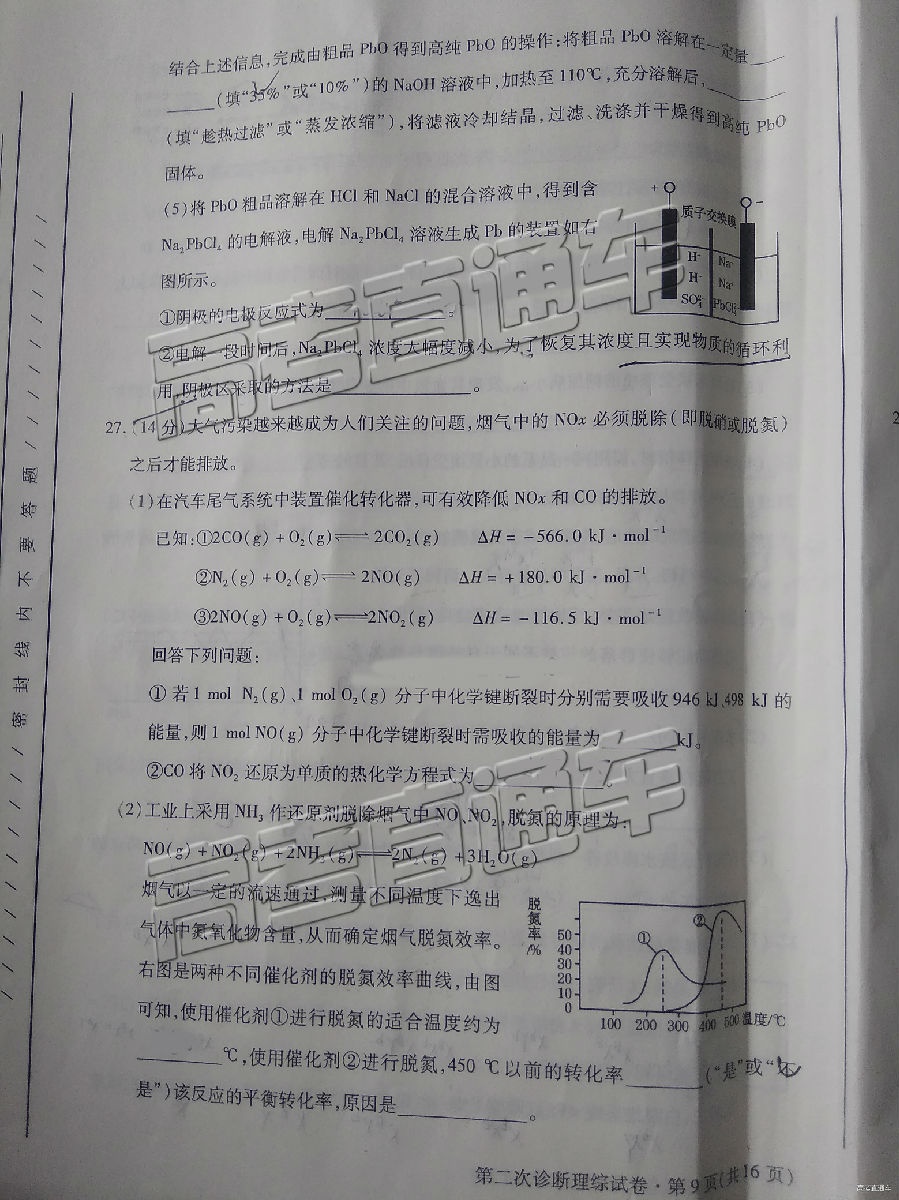 结合上述信息,完成由粗品 PbO 得到高纯 PbO 的操作:将粗品 PbO 溶解在一定量
(填“35%”或“10%”)的 NaOH 溶液中,加热至 110℃,充分溶解后,
(填“趁热过滤”或“蒸发浓缩”),将滤液冷却结晶,过滤、洗涤并干燥得到高纯 PbO
固体。
(5)将 PbO 粗品溶解在 HCl 和 NaCl 的混合溶液中,得到含
Na₂PbCl₄ 的电解液,电解 Na₂PbCl₄ 溶液生成 Pb 的装置如右
图所示。
①阴极的电极反应式为 。
②电解一段时间后,Na₂PbCl₄ 浓度大幅度减小,为了恢复其浓度且实现物质的循环利
用,阴极区采取的方法是 。
+ -
质子交换膜
H⁺ Na⁺
H⁺ Na⁺
27.(14 分)大气污染越来越成为人们关注的问题,烟气中的 NOx 必须脱除(即脱硝或脱氮)
之后才能排放。
(1)在汽车尾气系统中装置催化转化器,可有效降低 NOx 和 CO 的排放。
已知:①2CO(g) + O₂(g)⇌2CO₂(g) ΔH = -566.0 kJ·mol⁻¹
②N₂(g) + O₂(g)⇌2NO(g) ΔH = +180.0 kJ·mol⁻¹
③2NO(g) + O₂(g)⇌2NO₂(g) ΔH = -116.5 kJ·mol⁻¹
回答下列问题:
①若 1 mol N₂(g)、1 mol O₂(g) 分子中化学键断裂时分别需要吸收 946 kJ、498 kJ 的
能量,则 1 mol NO(g) 分子中化学键断裂时需吸收的能量为 kJ。
②CO 将 NO₂ 还原为单质的热化学方程式为 。
(2)工业上采用 NH₃ 作还原剂脱除烟气中 NO、NO₂,脱氮的原理为:
NO(g) + NO₂(g) + 2NH₃(g)⇌2N₂(g) + 3H₂O(g)
烟气以一定的流速通过,测量不同温度下逸出
气体中氮氧化物含量,从而确定烟气脱氮效率。
右图是两种不同催化剂的脱氮效率曲线,由图
可知,使用催化剂①进行脱氮的适合温度约为
℃,使用催化剂②进行脱氮,450 ℃以前的转化率 (“是”或“不
是”)该反应的平衡转化率,原因是 。
脱氮率/%
50
40
30
20
10
0
① ②
100 200 300 400 500 温度/℃
密封线内不要答题
第二次诊断理综试卷·第 9 页(共 16 页)
高考直通车
高考直通车
高考直通车